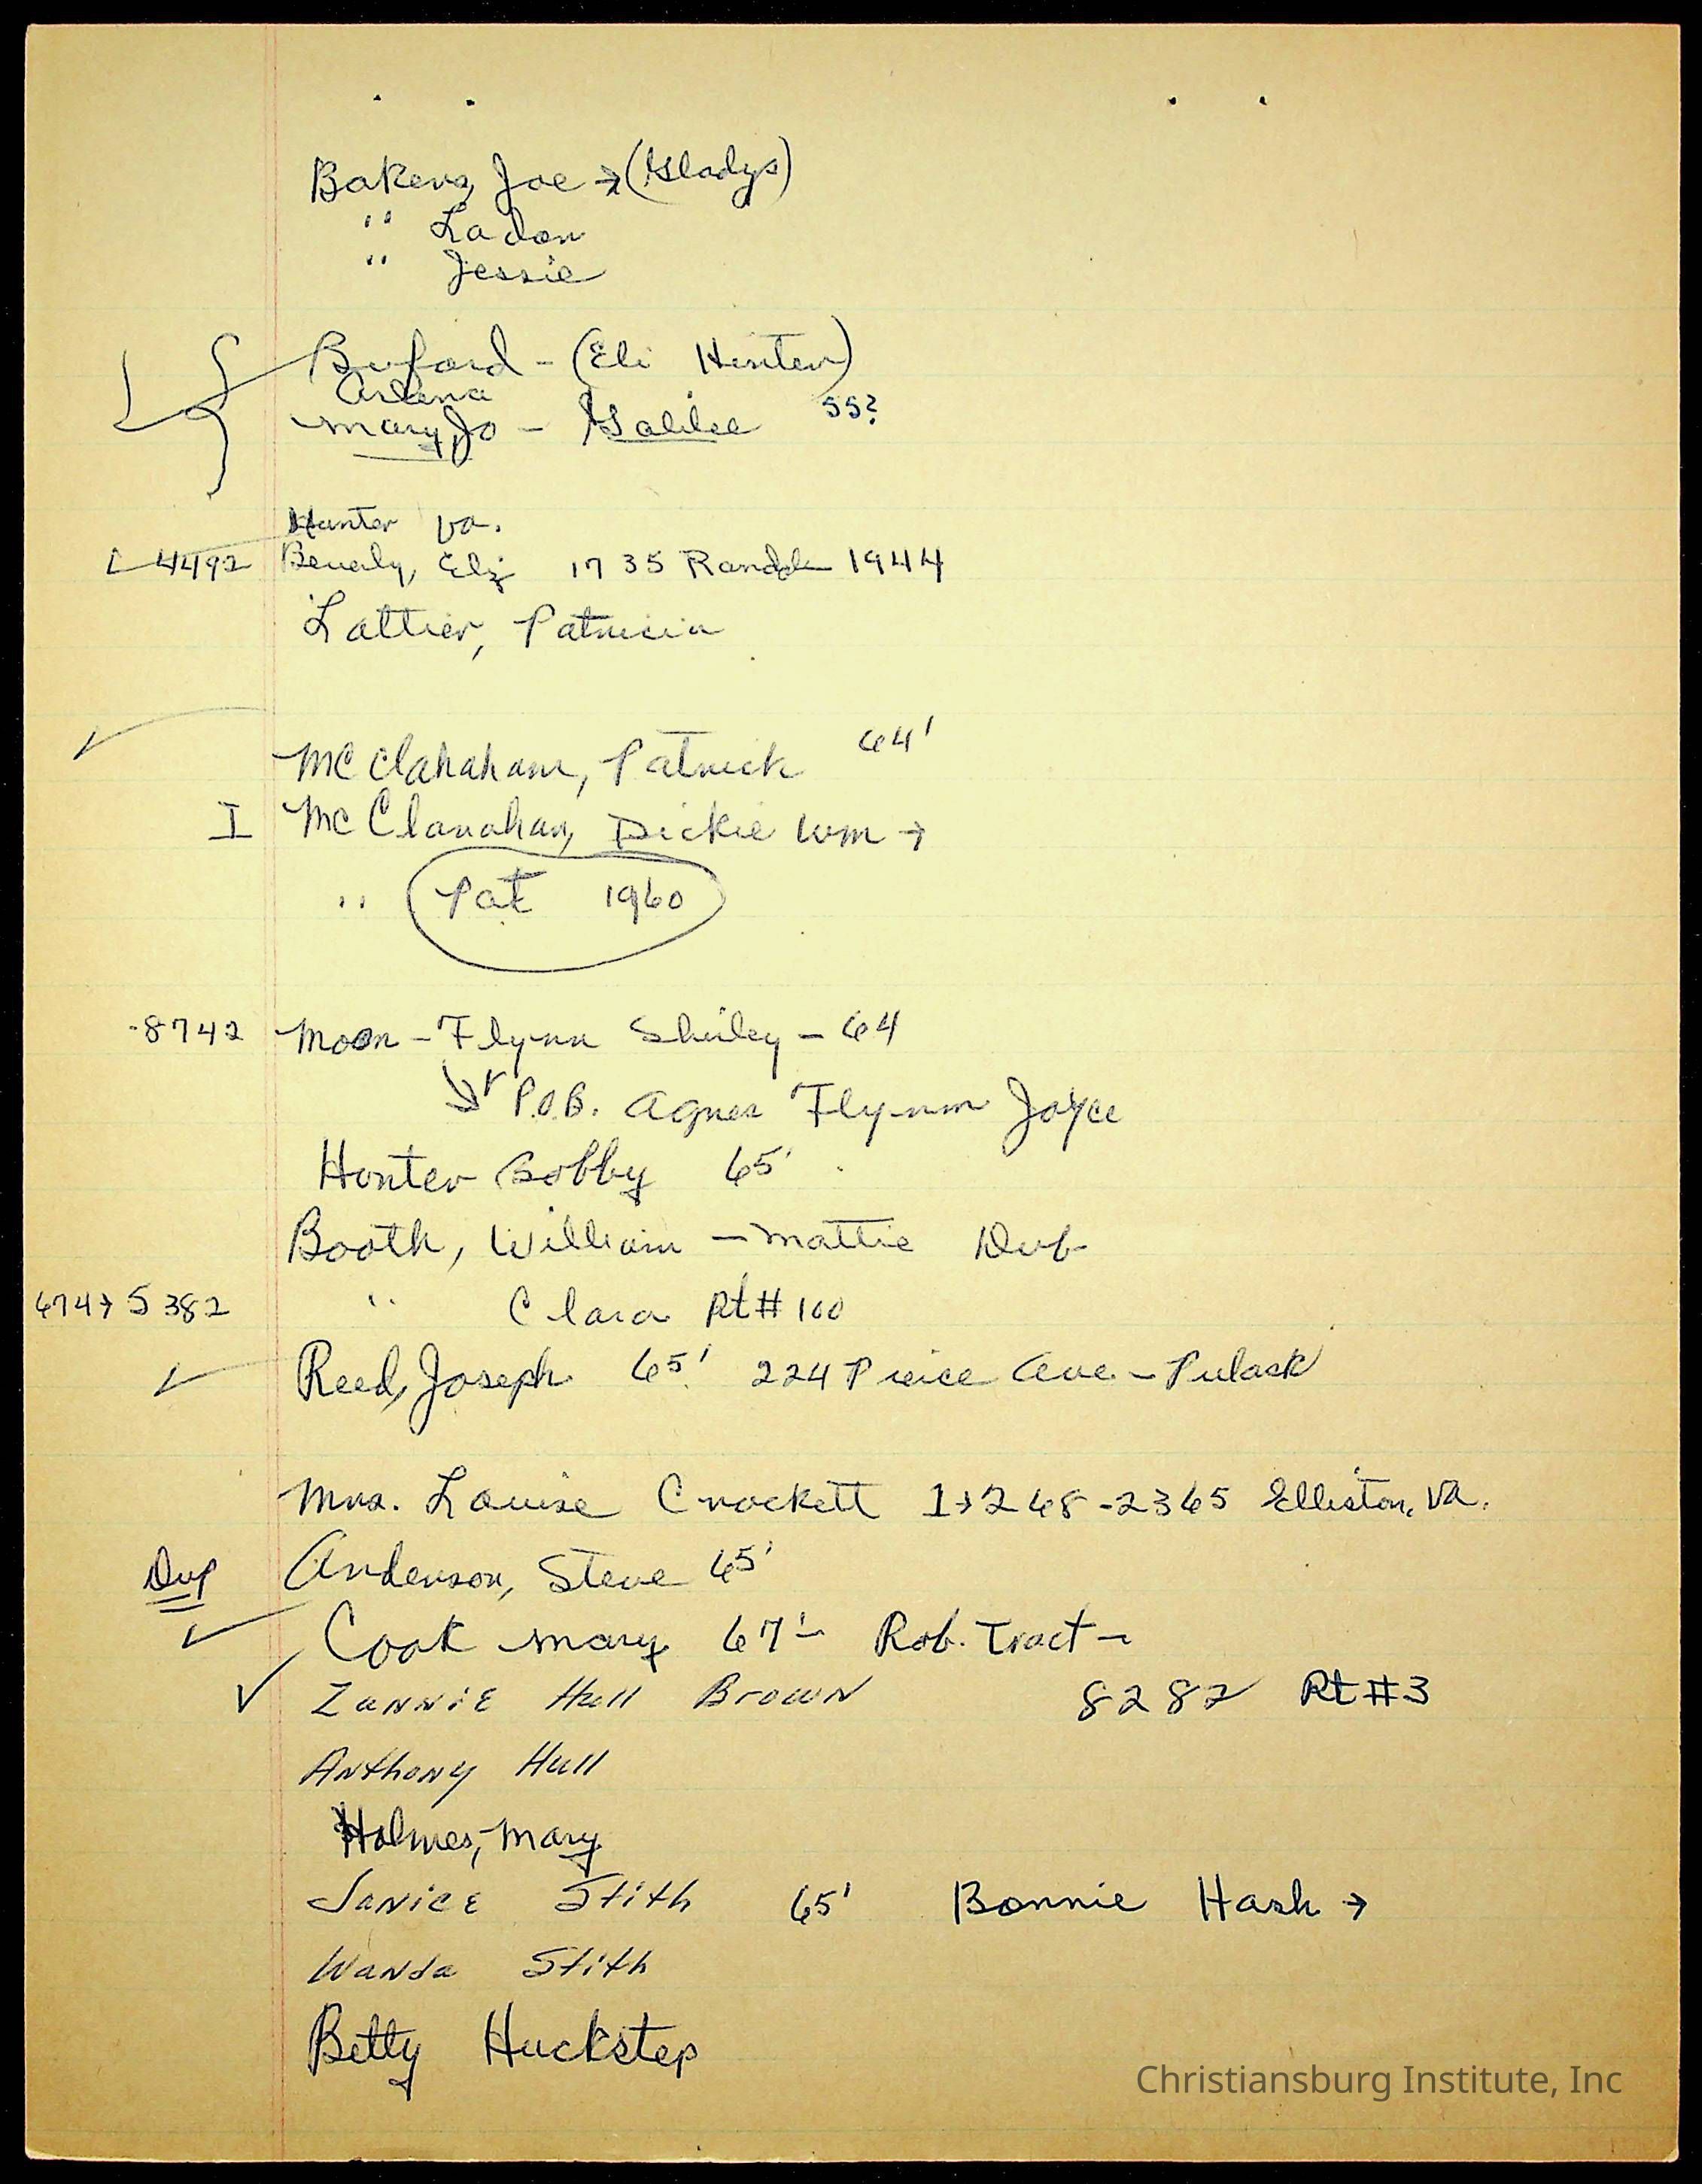 Bakers, Joe → (Gladys)
" Ladon
" Jessie
Buford - (Eli Hunter)
Arlena
Mary Jo - Galilee 55?
Hunter Va.
4492 Beverly, Eliz 1735 1944
Lattier, Patricia
McClahahan, Patrick 64'
I McClanahan, Dickie Wm →
" Pat 1960
8742 Moon - Flynn Shirley - 64
P.O.B. Agnes Flynn Joyce
Hunter Bobby 65'
Booth, William - Mattie Dub
674→5382 " Clara Rt# 100
Reed, Joseph 65' 224 Pierce Ave. - Pulask
Mrs. Louise Crockett 1→268-2365 Elliston, Va.
Dup Anderson, Steve 65'
Cook Mary 67'- Rob. Tract -
Zannie Hull Brown 8282 Rt#3
Anthony Hull
Holmes, Mary
Janice Stith 65' Bonnie Hash →
Wanda Stith
Betty Huckstep
Christiansburg Institute, Inc